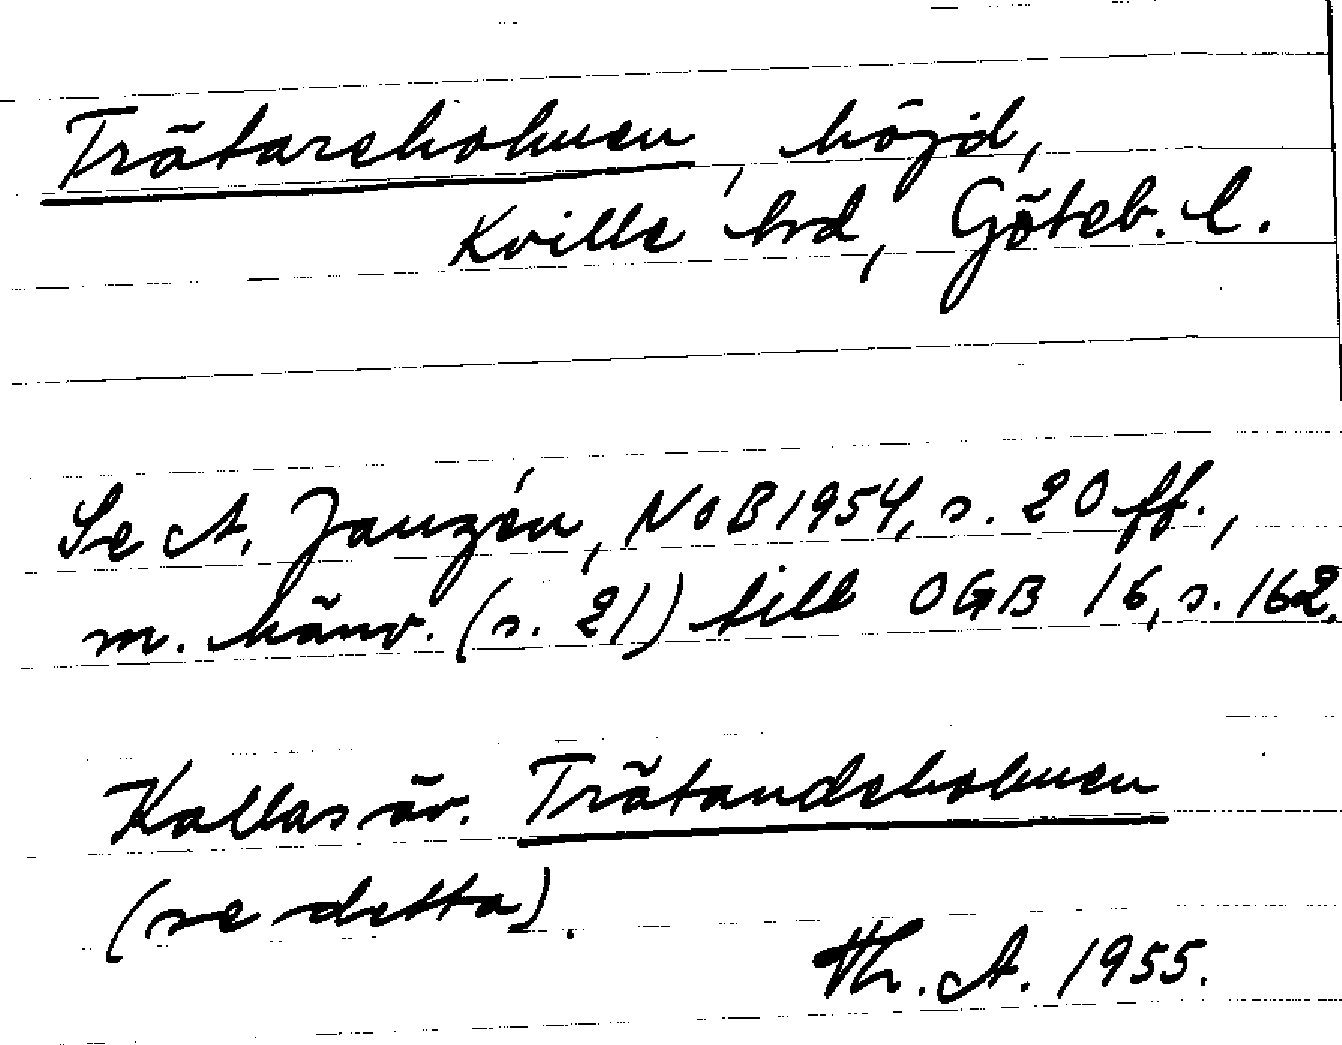 Trätareholmen, höjd,
Kville hrd, Göteb. l.
Se A. Janzén, NoB 1954, s. 20 ff.,
m. hänv. (s. 21) till OGB 16, s. 162.
Kallas äv. Trätandeholmen
(se detta).
Th. A. 1955.